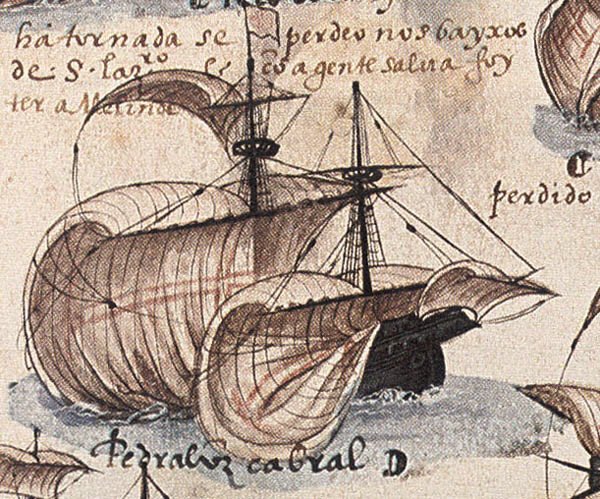 há tornada se perdeo nos bayxos
de S. Lazro e cõ a gente salua foy
ter a Melinde
perdido
Pedraluz cabral D